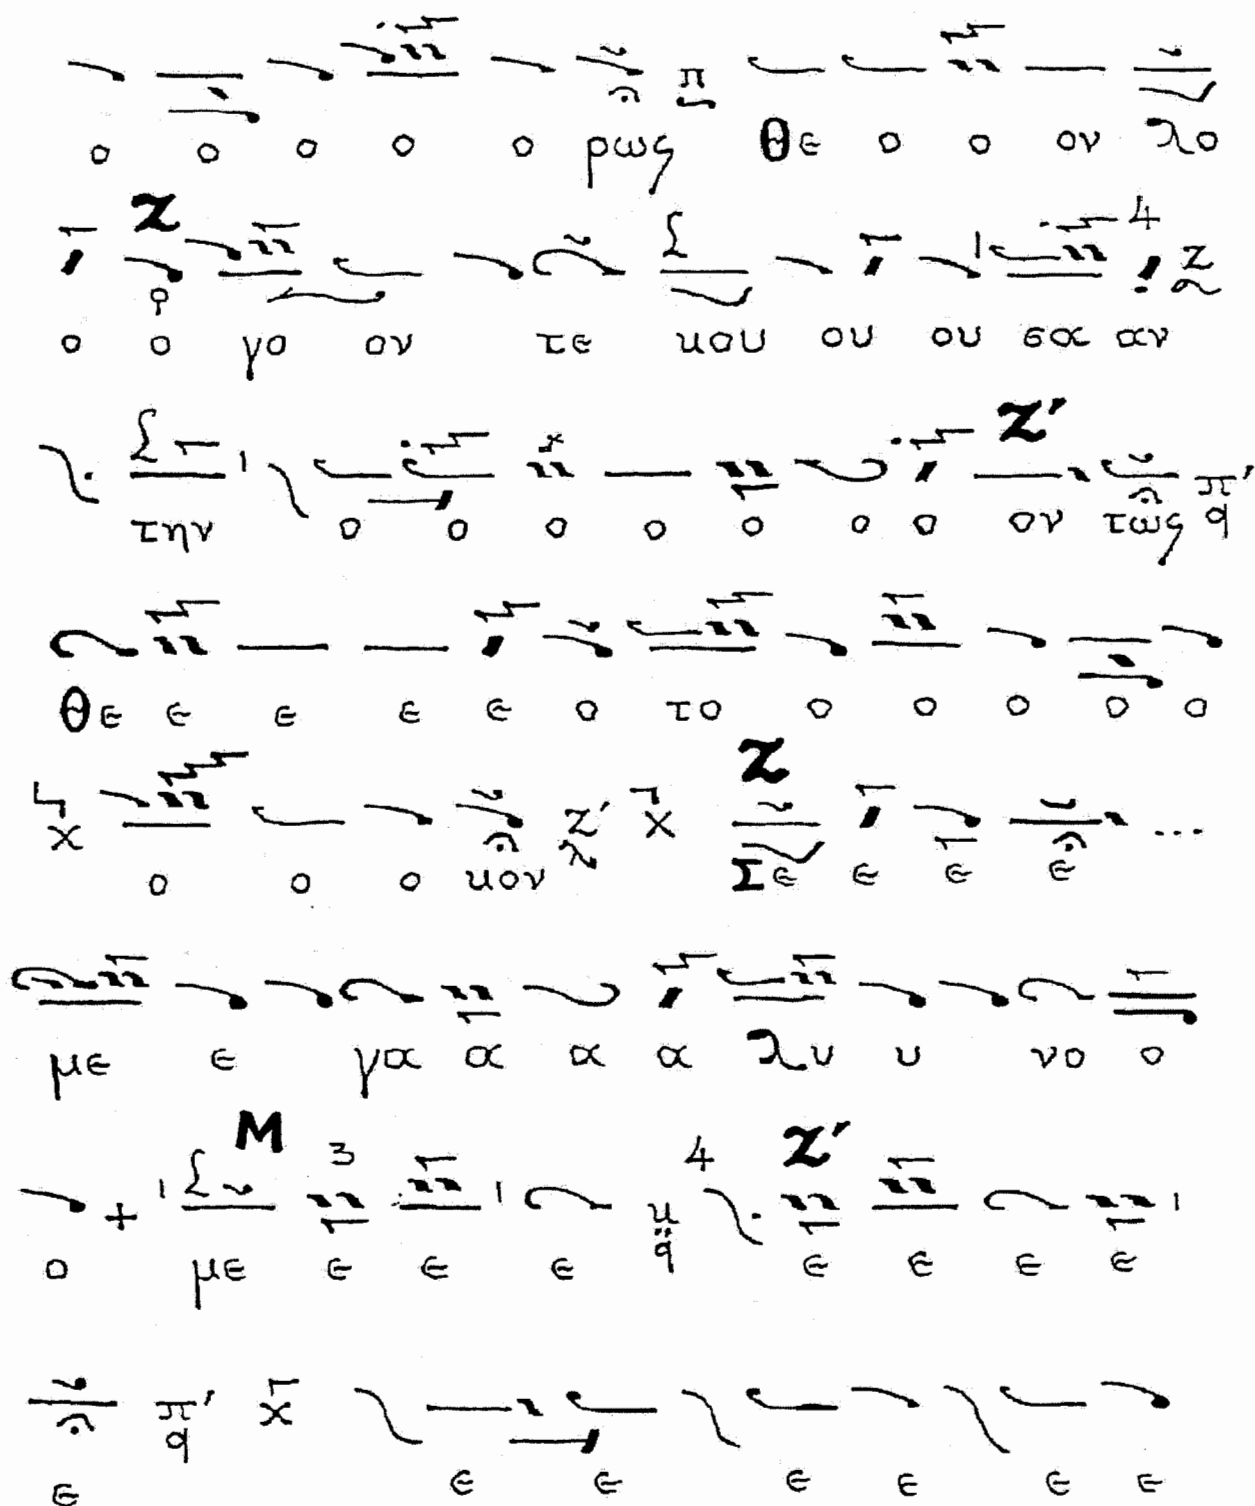 ο ο ο ο ο ρως π Θε ο ο ον λο
Z 4 Z
ο ο γο ον τε κου ου ου σα αν
Z'
την ο ο ο ο ο ο ο ον τως π' q
Θε ε ε ε ε ο το ο ο ο ο ο
Z
χ ο ο ο κον Z' λ χ Σε ε ε ε ...
με ε γα α α α λυ υ νο ο
M 3 4 Z'
ο με ε ε ε κ q ε ε ε ε
ε π' q χ ε ε ε ε ε ε